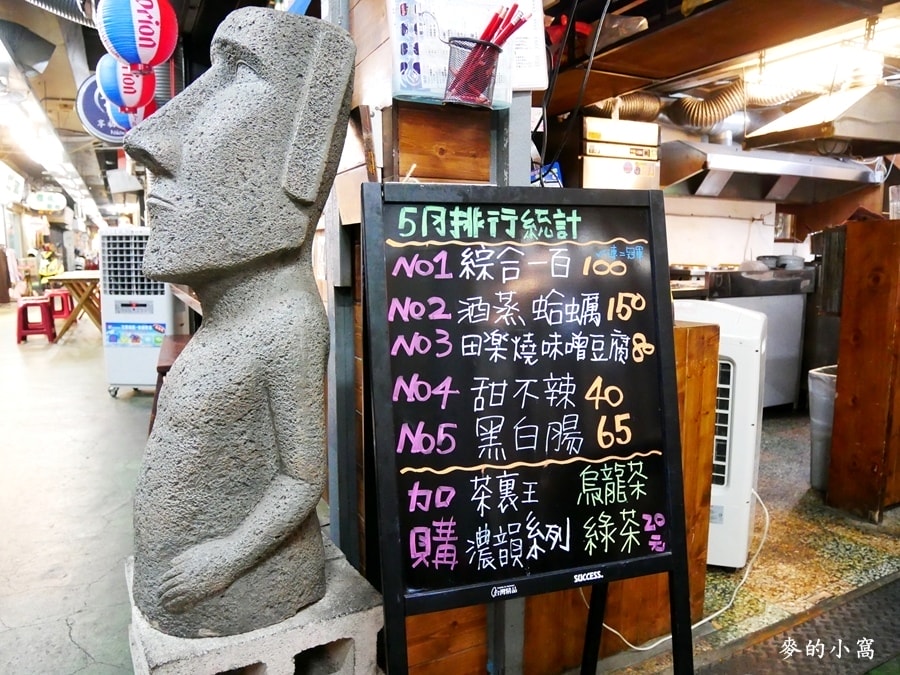 Orion
5月排行統計
NO1 綜合一百 100
NO2 酒蒸蛤蠣 150
NO3 田楽燒味噌豆腐 80
NO4 甜不辣 40
NO5 黑白腸 65
加購 茶裏王 烏龍茶
濃韻系列 綠茶 20元
SUCCESS.
麥的小窩